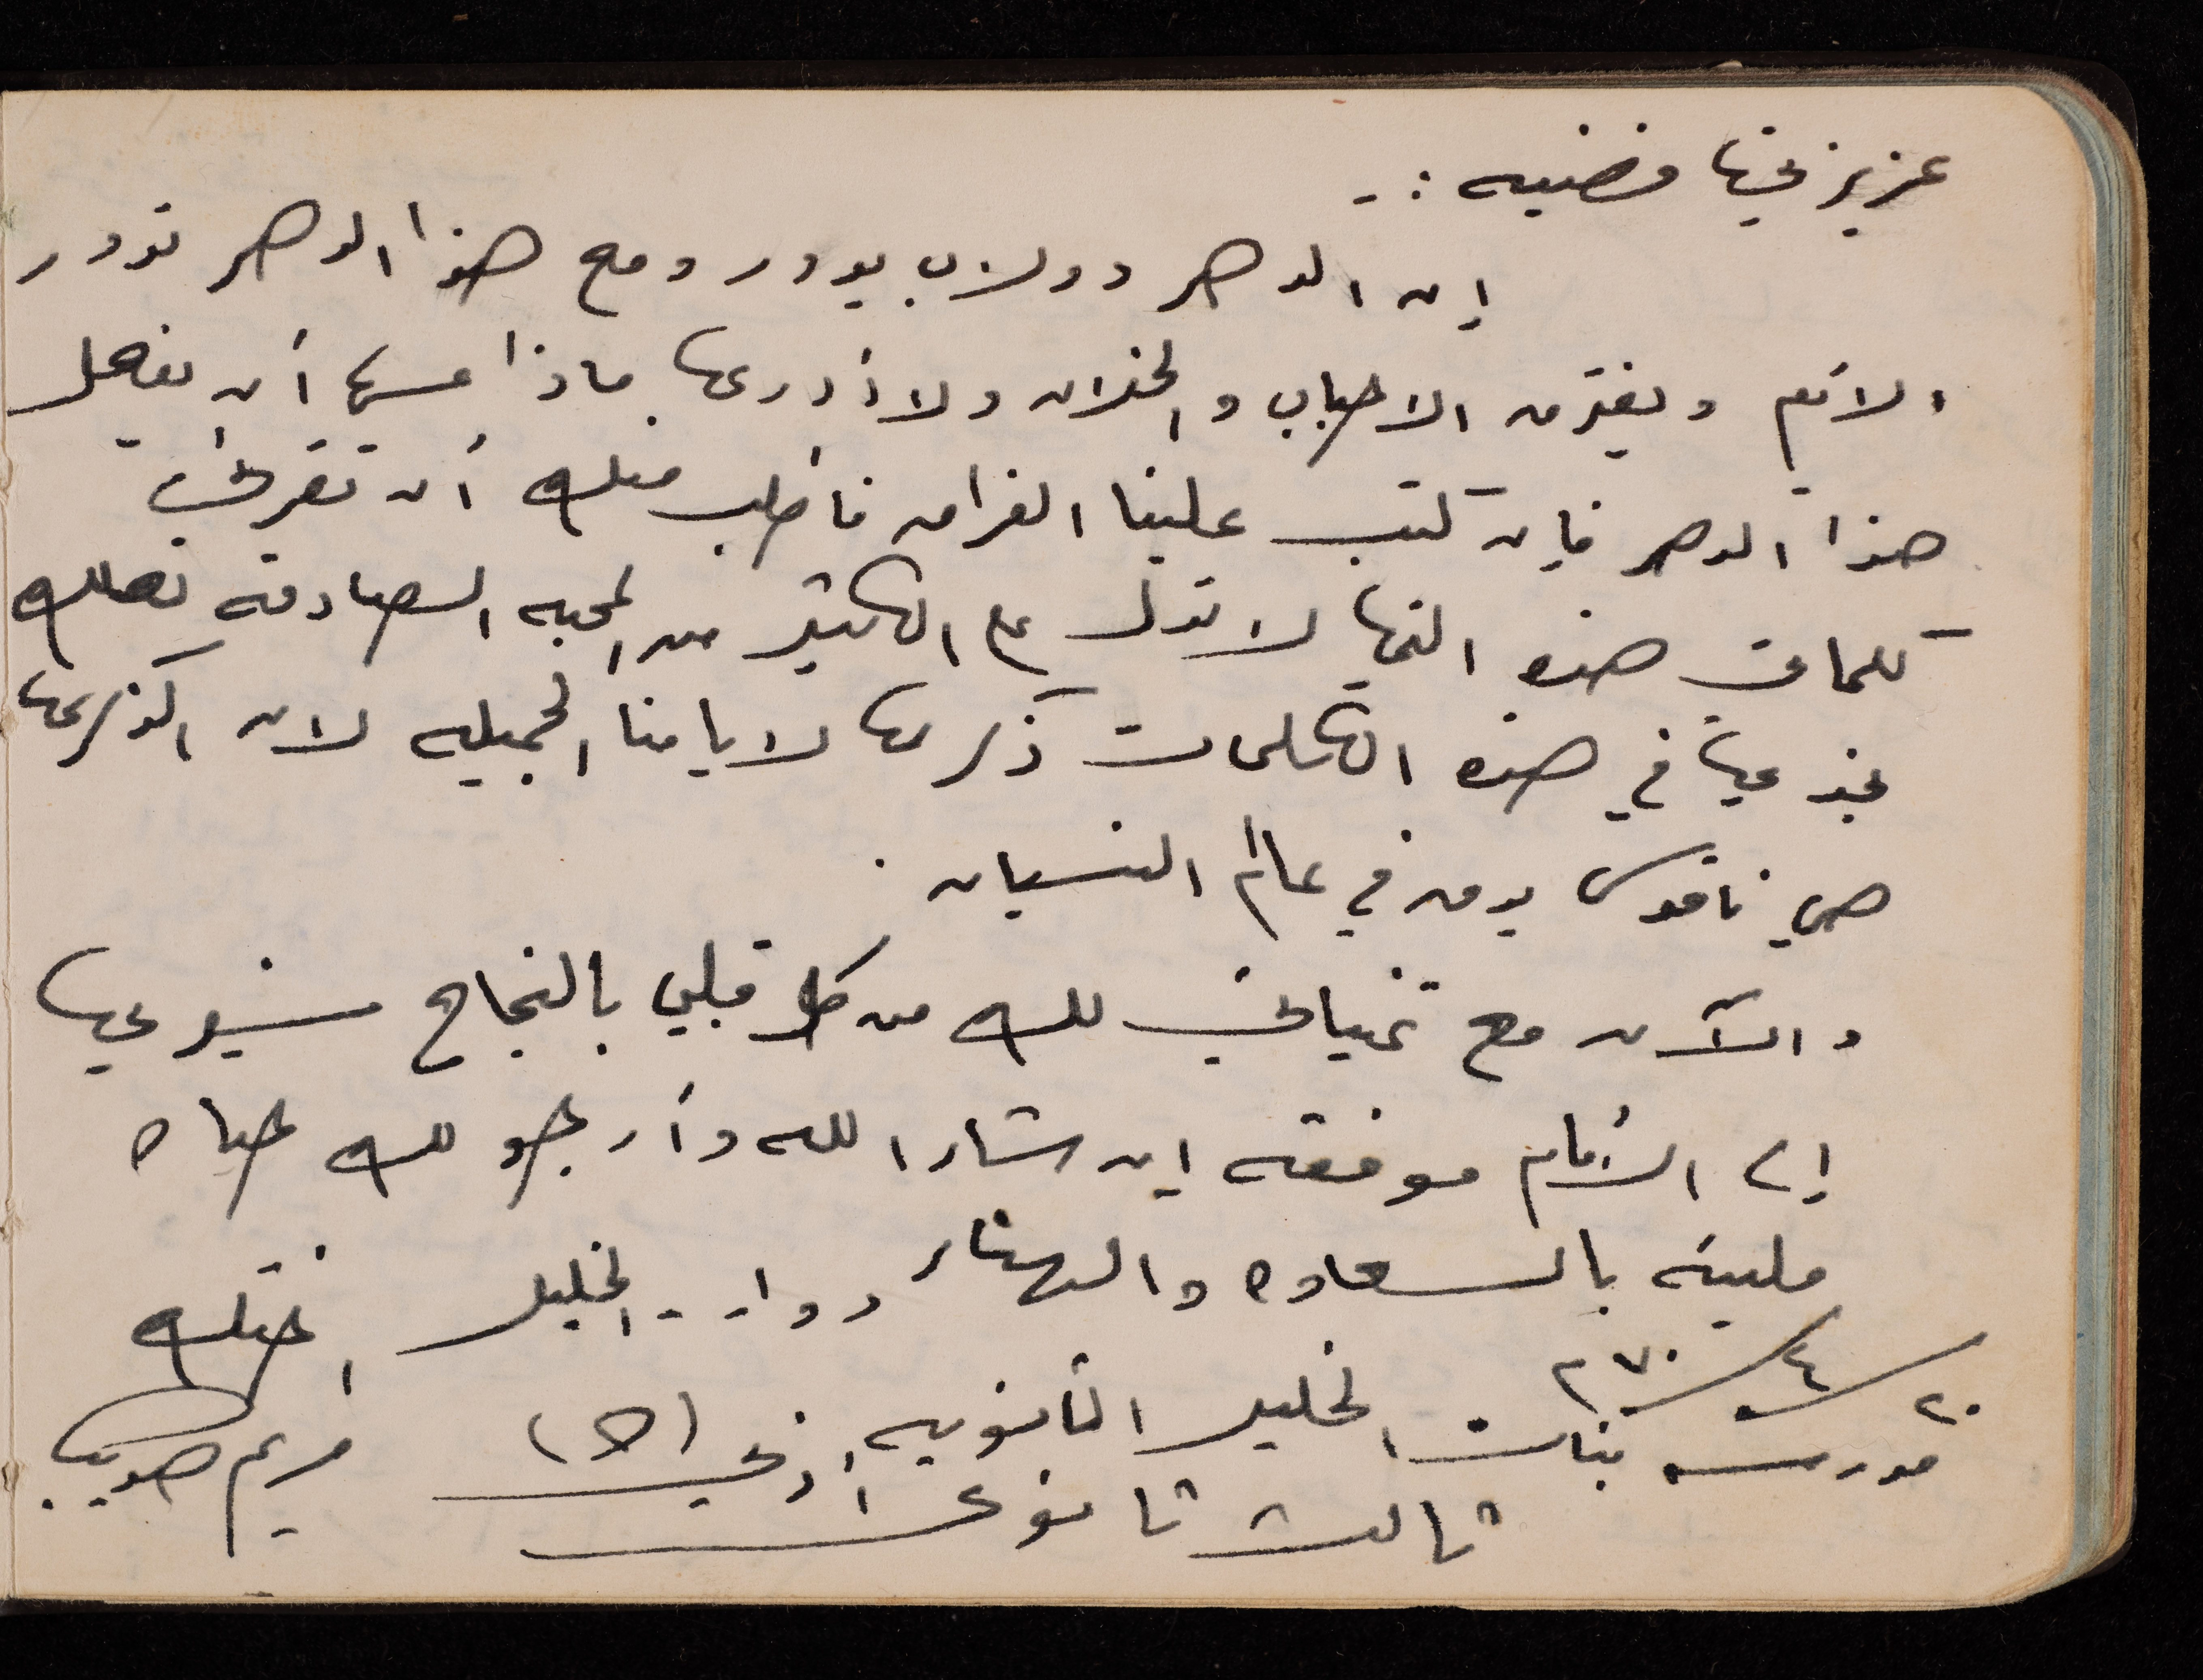 عزيزتي فضيه :ـ
إن الدهر دولاب يدور ومع هذا الدهر تدور
الأيام ويفترق الاحباب والخلان ولا أدري ماذا عسى أن يفعل
هذا الدهر فإن كتب علينا الفراق فأطلب منك أن تقرئي
كلمات هذه التي لا تدل على الكثير من المحبه الصادقه لعلك
تجدي في هذه الكلمات ذكرى لايامنا الجميله لان الذكرى
هي ناقوس يدق في عالم النسيان .
والآن مع تمنياتي لك من كل قلبي بالنجاح سيري
إلى الأمام موفقه إن شاء الله وأرجو لك حياه
مليئه بالسعاده والهناء دورا - الخليل اختك
٢٠/٤/٧٠م
مدرسه بنات الخليل الثانويه مريم
ثالث ثانوى أدبي (ه)